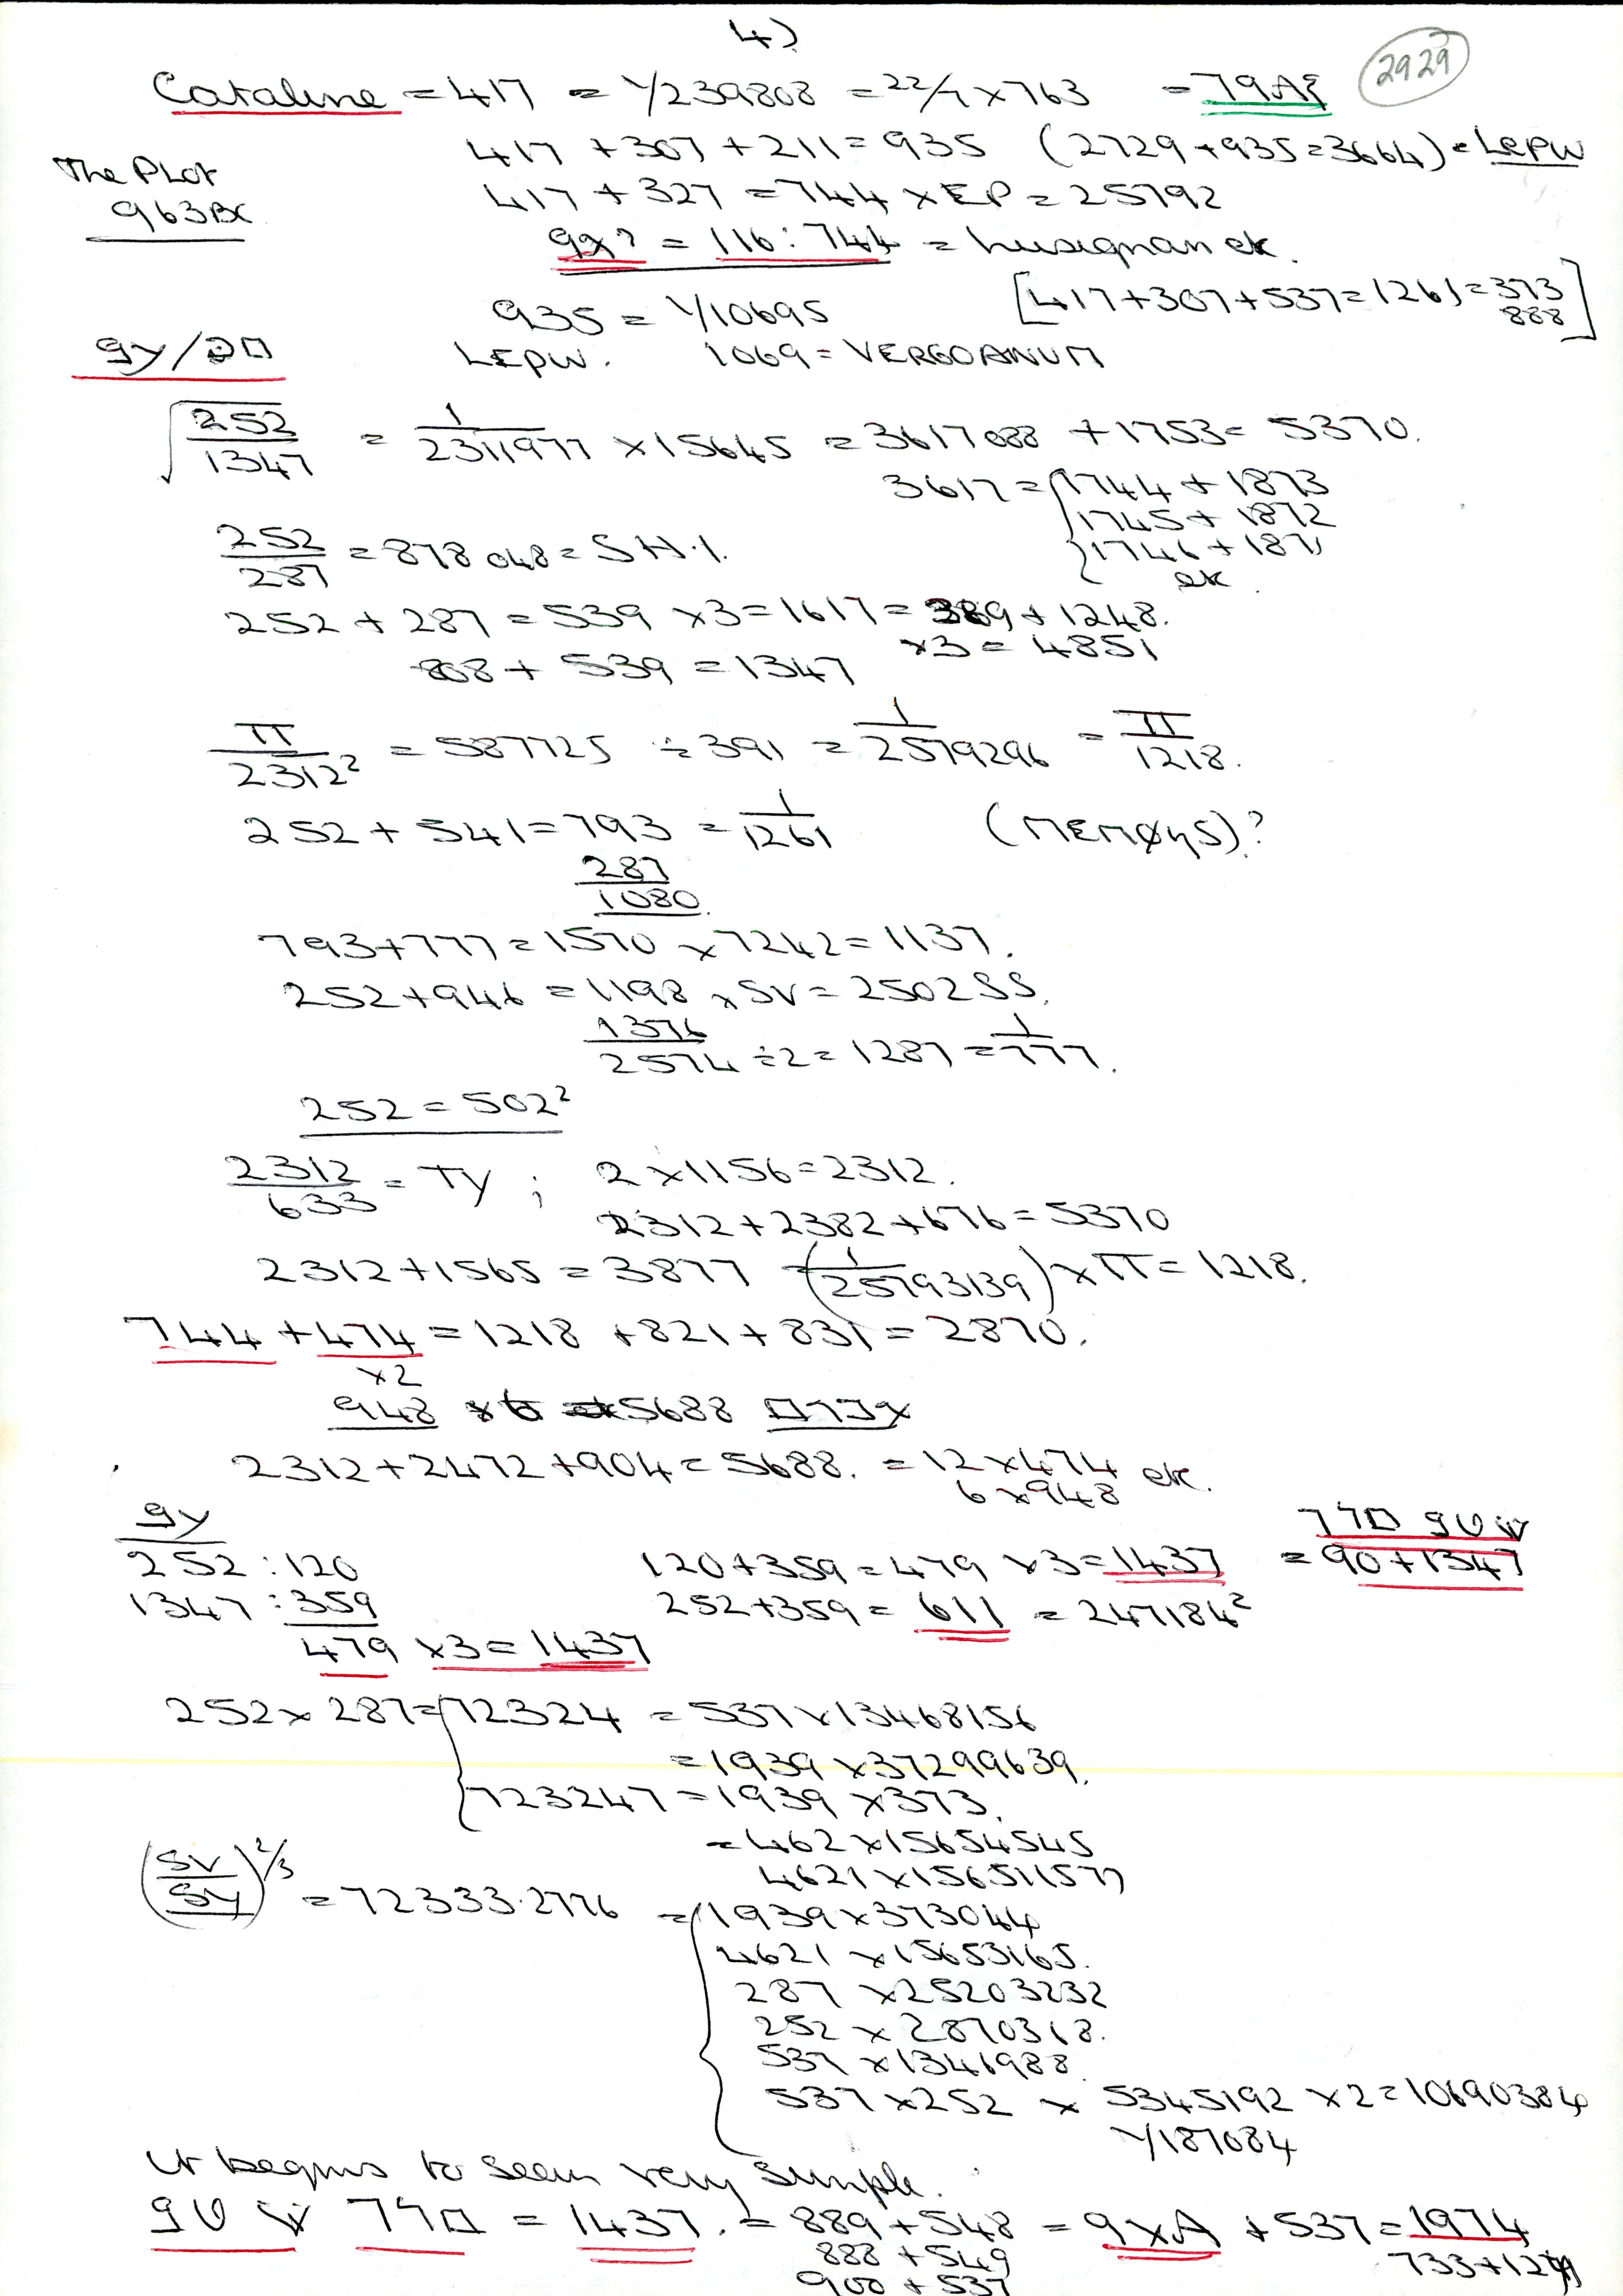 4)
2929
Cataline = 417 = 1/239808 = 22/7 x 763 = 79A
417 + 307 + 211 = 935 (2729 + 935 = 3664) = LEPW
The Plot
963BC
417 + 327 = 744 x EP = 25792
9x? = 116 : 744 = Lusignan ek.
[417 + 307 + 537 = 1261 = 373
888]
935 = 1/10695
LEPW. 1069 = VERGOANUM
√252/1347 = 1/2311977 x 15645 = 3617088 + 1753 = 5370.
3617 = {1744 + 1873
1745 + 1872
1746 + 1871
ek.
252/287 = 878048 = SH.1.
252 + 287 = 539 x 3 = 1617 = 369 + 1248.
x3 = 4851
808 + 539 = 1347
π/2312² = 587725 ÷ 391 = 1/2579296 = π/1218.
252 + 541 = 793 = 1/1261
287
1080.
793 + 777 = 1570 x 7242 = 1137.
252 + 946 = 1198 x SV = 2502SS.
1376
2574 ÷ 2 = 1287 = 1/777.
252 = 502²
2312/633 = TY ; 2 x 1156 = 2312.
2312 + 2382 + 676 = 5370
2312 + 1565 = 3877 (1/25793139) x π = 1218.
744 + 474 = 1218 + 821 + 831 = 2870.
x2
948 x 6 = 5688
2312 + 2472 + 904 = 5688. = 12 x 474 ek.
6 x 948
gy
252 : 120
1347 : 359
479 x3 = 1437
120 + 359 = 479 x 3 = 1437
= 90 + 1347
252 + 359 = 611 = 247184²
252 x 287 = {72324 = 537 x 13468156
= 1939 x 37299639.
723247 = 1939 x 373.
= 462 x 15654545
4621 x 156511577
(SV/SY)^2/3 = 72333.2776 = {1939 x 373044
4621 x 15653165.
287 x 25203232
252 x 2870318.
537 x 1346988
537 x 252 x 5345192 x 2 = 10690384
1/187084
it begins to seem very simple.
= 1437. = 889 + 548 = 9xA + 537 = 1974
888 + 549
900 + 537